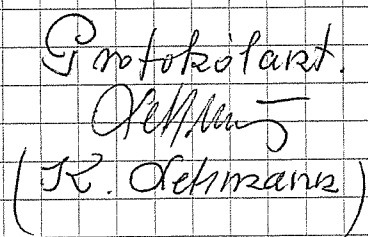 Protokólant.
(K. Lehmann)